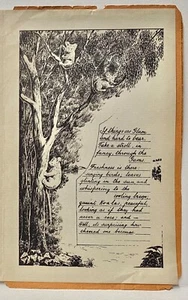 If things are Glum
and hard to bear,
Take a stroll, in
fancy, through the
Trees
Freshness is there
singing birds, leaves
glinting in the sun, and
whispering to the
cooling breeze,
genial Koalas, peaceful,
looking as if they had
never a care, and —
well, its surprising how
cheered one becomes